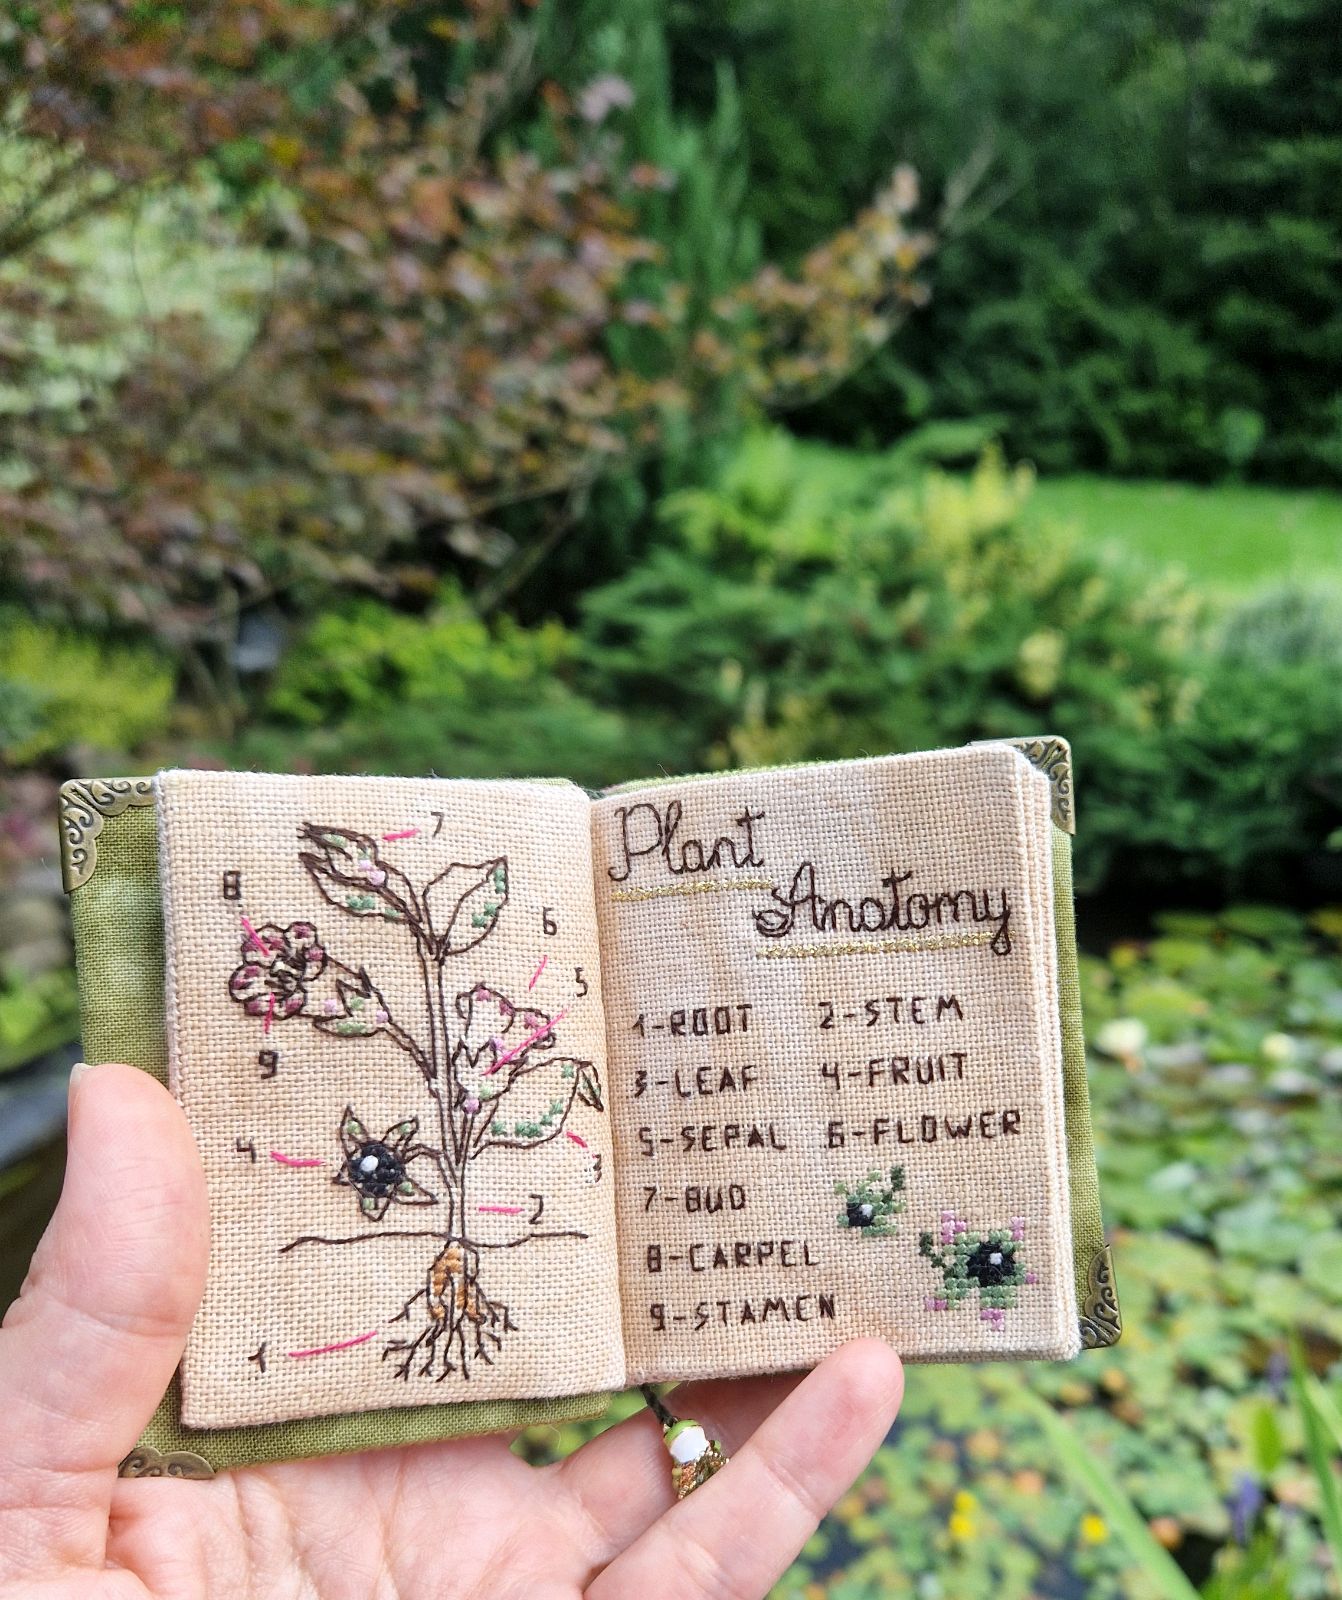 7
8
6
5
9
4
3
2
1
Plant
Anatomy
1-ROOT 2-STEM
3-LEAF 4-FRUIT
5-SEPAL 6-FLOWER
7-BUD
8-CARPEL
9-STAMEN